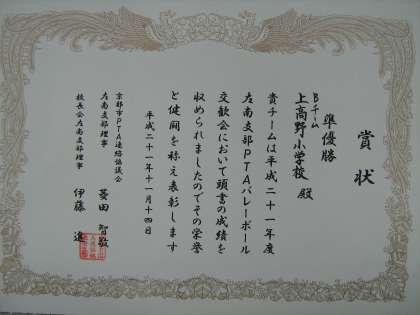 賞状
準優勝
Bチーム
上高野小学校 殿
貴チームは平成二十一年度
左南支部PTAバレーボール
交歓会において頭書の成績を
収められましたのでその栄誉
と健闘を称え表彰します
平成二十一年十一月十四日
京都市PTA連絡協議会
左南支部理事 菱田 智敬
校長会左南支部理事 伊藤 進